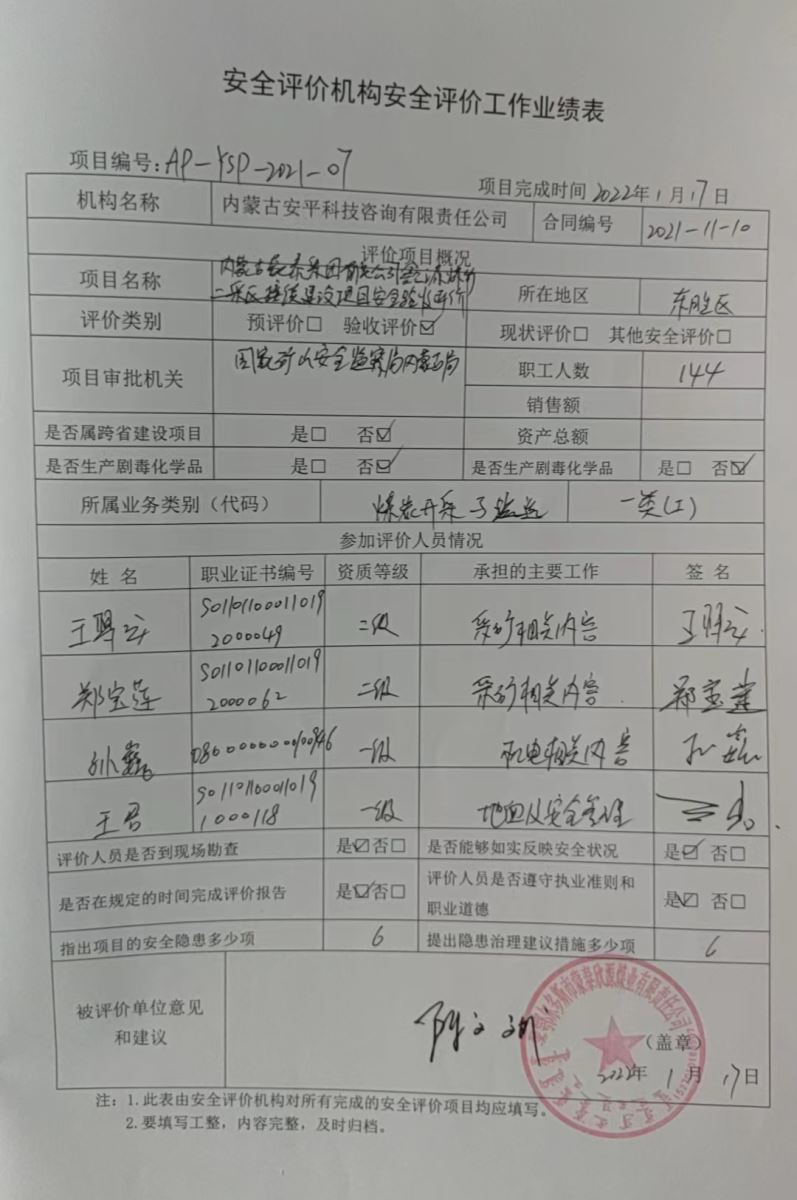 安全评价机构安全评价工作业绩表
项目编号:AP-YSP-2021-07
项目完成时间 2022年1月17日
机构名称 内蒙古安平科技咨询有限责任公司 合同编号 2021-11-10
评价项目概况
项目名称 二采区接续建设项目安全验收评价 所在地区 东胜区
评价类别 预评价□ 验收评价☑ 现状评价□ 其他安全评价□
项目审批机关 国家矿山安全监察局内蒙古局 职工人数 144
销售额
是否属跨省建设项目 是□ 否☑ 资产总额
是否生产剧毒化学品 是□ 否☑ 是否生产剧毒化学品 是□ 否☑
所属业务类别（代码） 煤炭开采 一类(I)
参加评价人员情况
姓名 职业证书编号 资质等级 承担的主要工作 签名
S011011000110192000049 二级 采矿相关内容
郑宝莲 S011011000110192000062 二级 采矿相关内容 郑宝莲
一级 机电相关内容
王君 S011011000110191000118 一级 王君
评价人员是否到现场勘查 是☑否□ 是否能够如实反映安全状况 是☑ 否□
是否在规定的时间完成评价报告 是☑否□ 评价人员是否遵守执业准则和
职业道德 是☑ 否□
指出项目的安全隐患多少项 6 提出隐患治理建议措施多少项 6
被评价单位意见
和建议
（盖章）
2022年1月17日
注：1.此表由安全评价机构对所有完成的安全评价项目均应填写。
2.要填写工整，内容完整，及时归档。